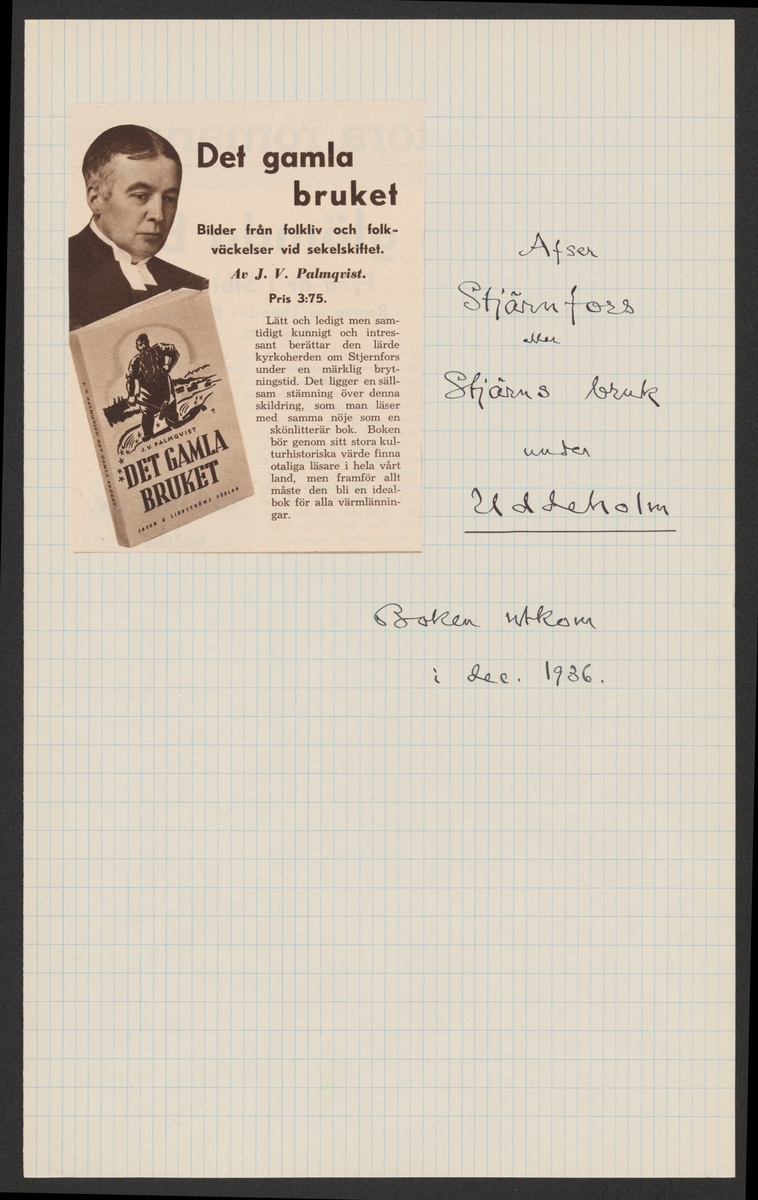 Det gamla
bruket
Bilder från folkliv och folk-
väckelser vid sekelskiftet.
Av J. V. Palmqvist.
Pris 3:75.
Lätt och ledigt men sam-
tidigt kunnigt och intres-
sant berättar den lärde
kyrkoherden om Stjernfors
under en märklig bryt-
ningstid. Det ligger en säll-
sam stämning över denna
skildring, som man läser
med samma nöje som en
skönlitterär bok. Boken
bör genom sitt stora kul-
turhistoriska värde finna
otaliga läsare i hela vårt
land, men framför allt
måste den bli en ideal-
bok för alla värmlännin-
gar.
J. V. PALMQVIST
DET GAMLA
BRUKET
SAXON & LINDSTRÖMS FÖRLAG
Afser
Stjärnfors
eller
Stjärns bruk
under
Uddeholm
Boken utkom
i dec. 1936.